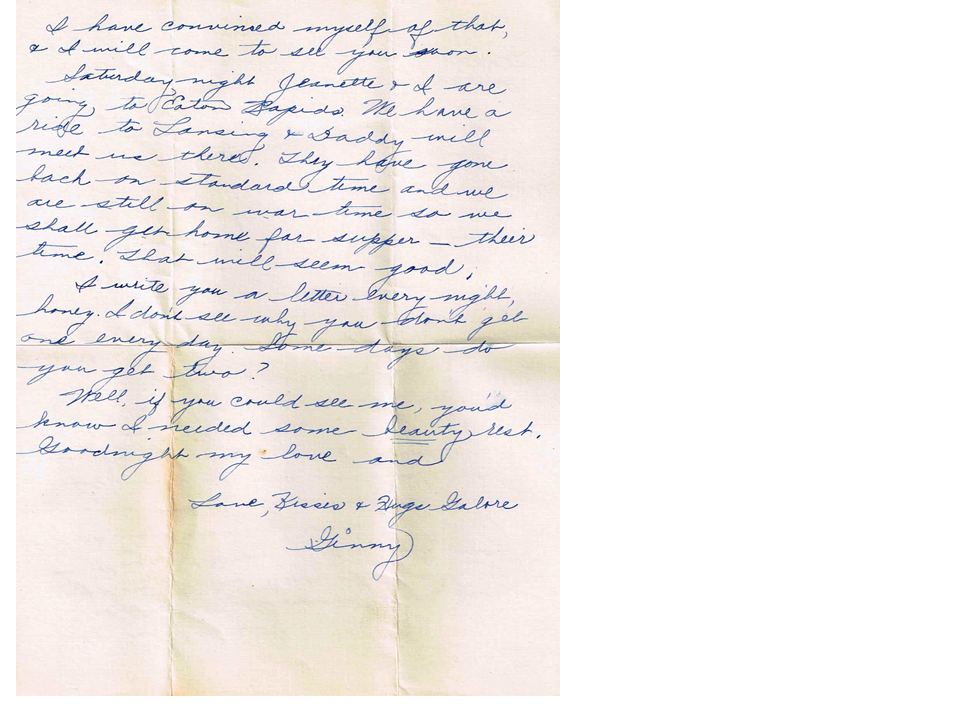 I have convinced myself of that,
& I will come to see you soon.
Saturday night Jeanette & I are
going to Eaton Rapids. We have a
ride to Lansing & Daddy will
meet us there. They have gone
back on standard time and we
are still on war time so we
shall get home for supper – their
time. That will seem good.
I write you a letter every night,
honey. I don't see why you don't get
one every day. Some days do
you get two?
Well, if you could see me, you'd
know I needed some beauty rest.
Goodnight my love and
Love, Kisses & Hugs Galore
Ginny